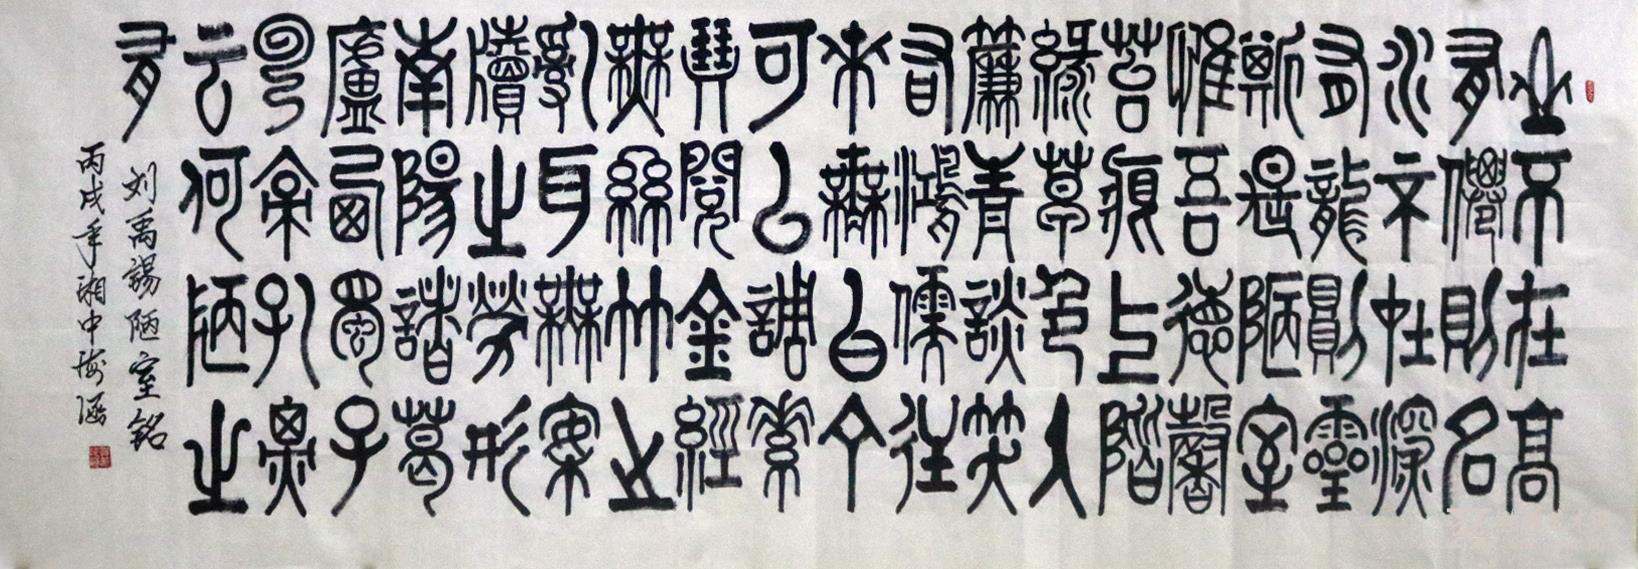 山不在高
有僊則名
水不在深
有龍則靈
斯是陋室
惟吾德馨
苔痕上階
綠草色入
簾青談笑
有鴻儒往
來無白丁
可以調素
琴閱金經
無絲竹之
亂耳無案
牘之勞形
南陽諸葛
廬西蜀子
雲亭孔子
云何陋之
有
刘禹錫陋室銘
丙戌年湘中海涵